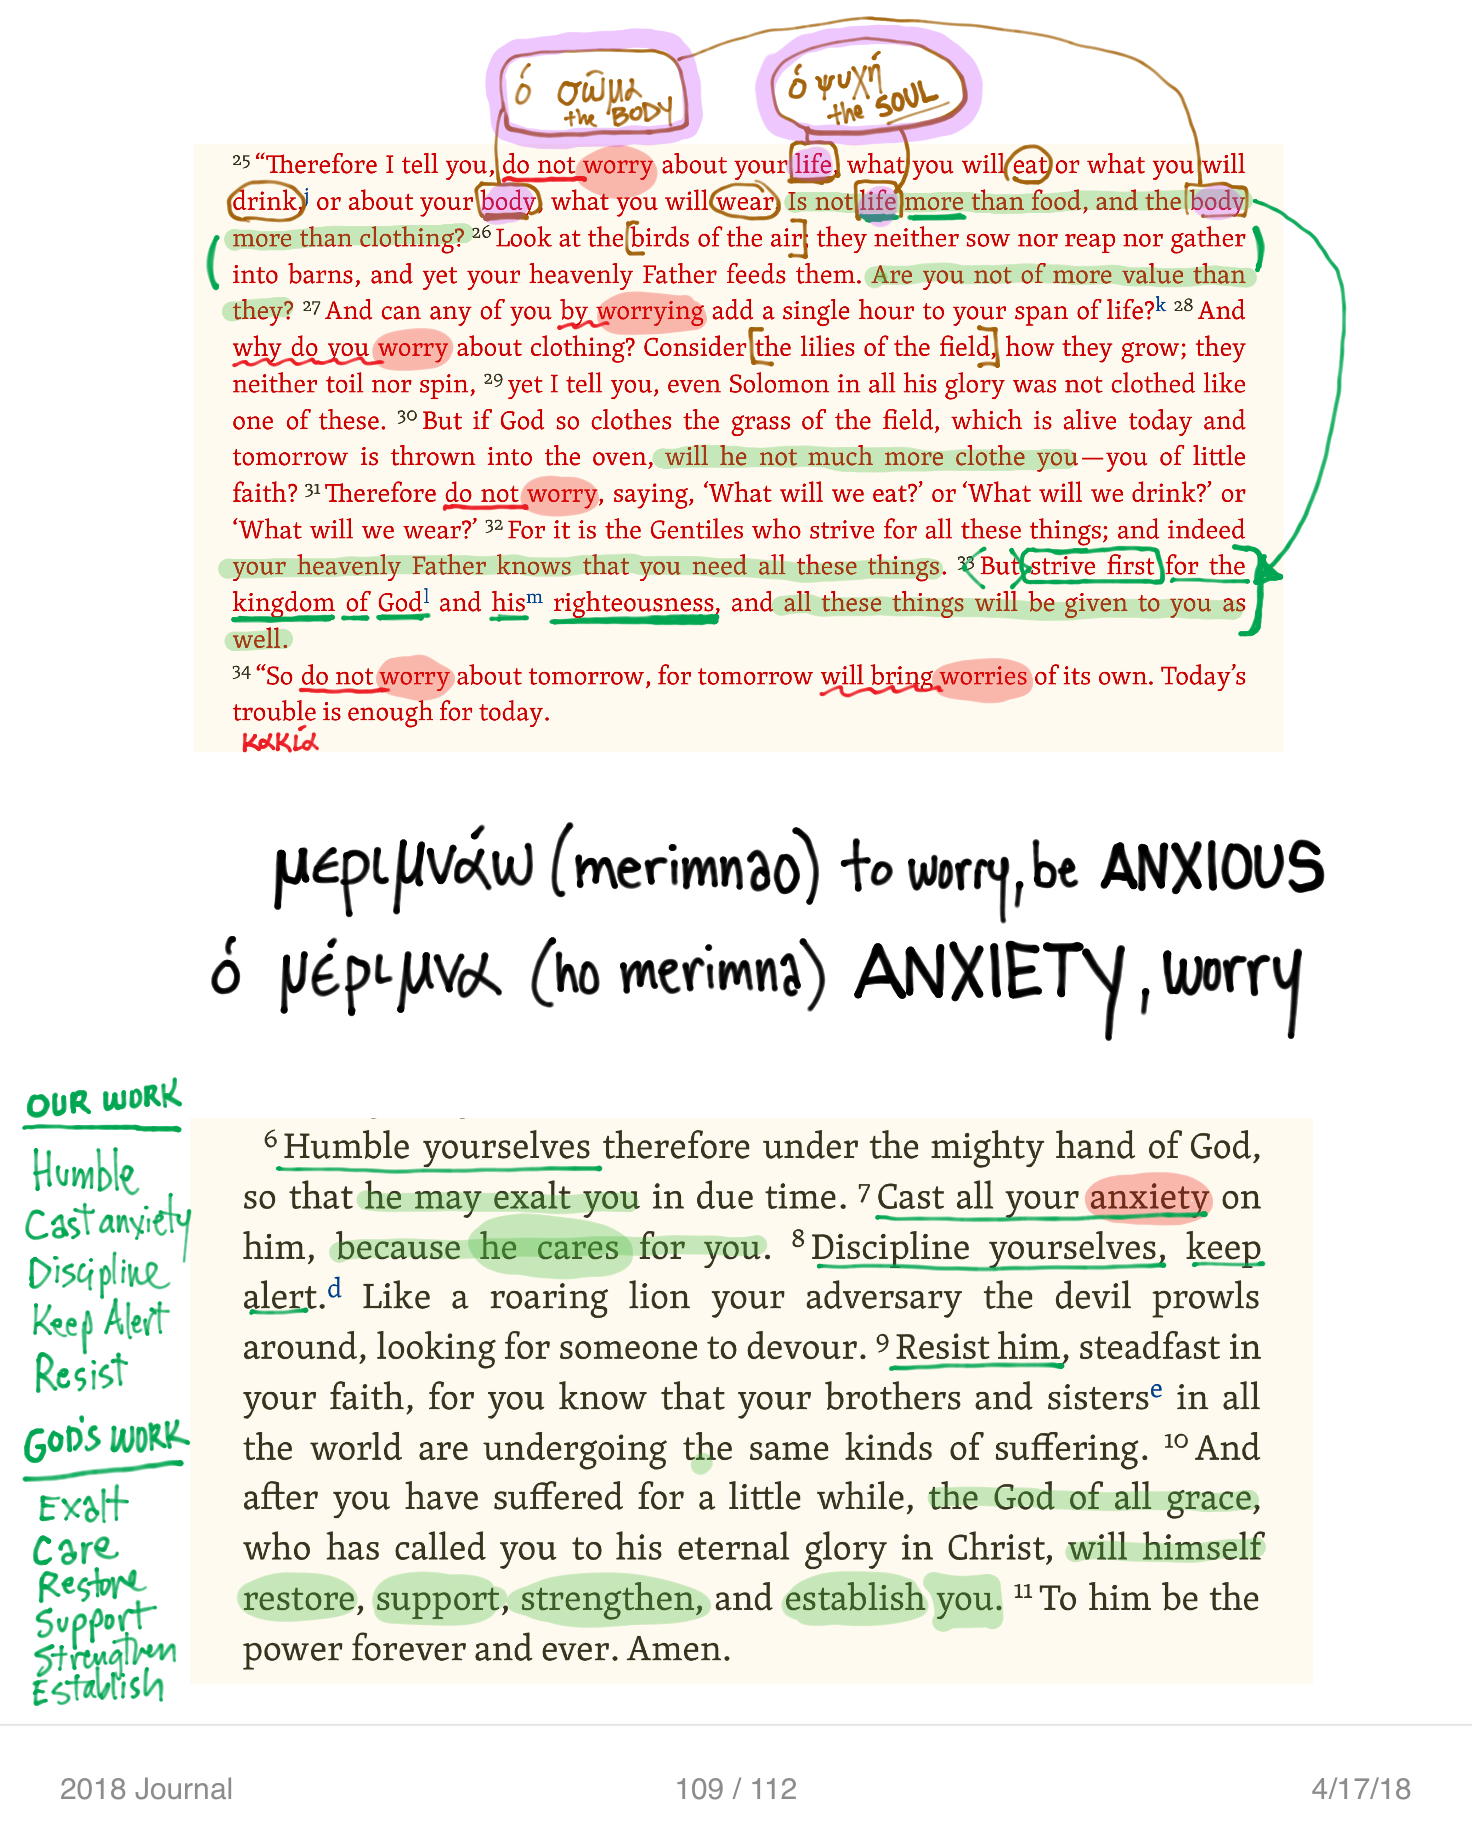 ὁ σῶμα
the BODY
ὁ ψυχή
the SOUL
25 “Therefore I tell you, do not worry about your life, what you will eat or what you will
drink,j or about your body, what you will wear. Is not life more than food, and the body
more than clothing? 26 Look at the [birds of the air]; they neither sow nor reap nor gather
into barns, and yet your heavenly Father feeds them. Are you not of more value than
they? 27 And can any of you by worrying add a single hour to your span of life?k 28 And
why do you worry about clothing? Consider [the lilies of the field,] how they grow; they
neither toil nor spin, 29 yet I tell you, even Solomon in all his glory was not clothed like
one of these. 30 But if God so clothes the grass of the field, which is alive today and
tomorrow is thrown into the oven, will he not much more clothe you—you of little
faith? 31 Therefore do not worry, saying, ‘What will we eat?’ or ‘What will we drink?’ or
‘What will we wear?’ 32 For it is the Gentiles who strive for all these things; and indeed
your heavenly Father knows that you need all these things. 33 But strive first for the
kingdom of Godl and hism righteousness, and all these things will be given to you as
well.
34 “So do not worry about tomorrow, for tomorrow will bring worries of its own. Today’s
trouble is enough for today.
κακία
μεριμνάω (merimnao) to worry, be ANXIOUS
ὁ μέριμνα (ho merimna) ANXIETY, worry
OUR WORK
Humble
Cast anxiety
Discipline
Keep Alert
Resist
GOD'S WORK
Exalt
Care
Restore
Support
Strengthen
Establish
6 Humble yourselves therefore under the mighty hand of God,
so that he may exalt you in due time. 7 Cast all your anxiety on
him, because he cares for you. 8 Discipline yourselves, keep
alert.d Like a roaring lion your adversary the devil prowls
around, looking for someone to devour. 9 Resist him, steadfast in
your faith, for you know that your brothers and sisterse in all
the world are undergoing the same kinds of suffering. 10 And
after you have suffered for a little while, the God of all grace,
who has called you to his eternal glory in Christ, will himself
restore, support, strengthen, and establish you. 11 To him be the
power forever and ever. Amen.
2018 Journal
109 / 112
4/17/18